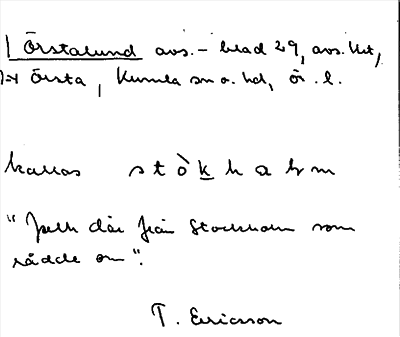 Örstalund avs. - blad 29, avs. litt,
Örsta, Kumla sn o. hd, ör. l.
kallas stòkhalm
" där från Stockholm som
rådde om".
T. Ericsson